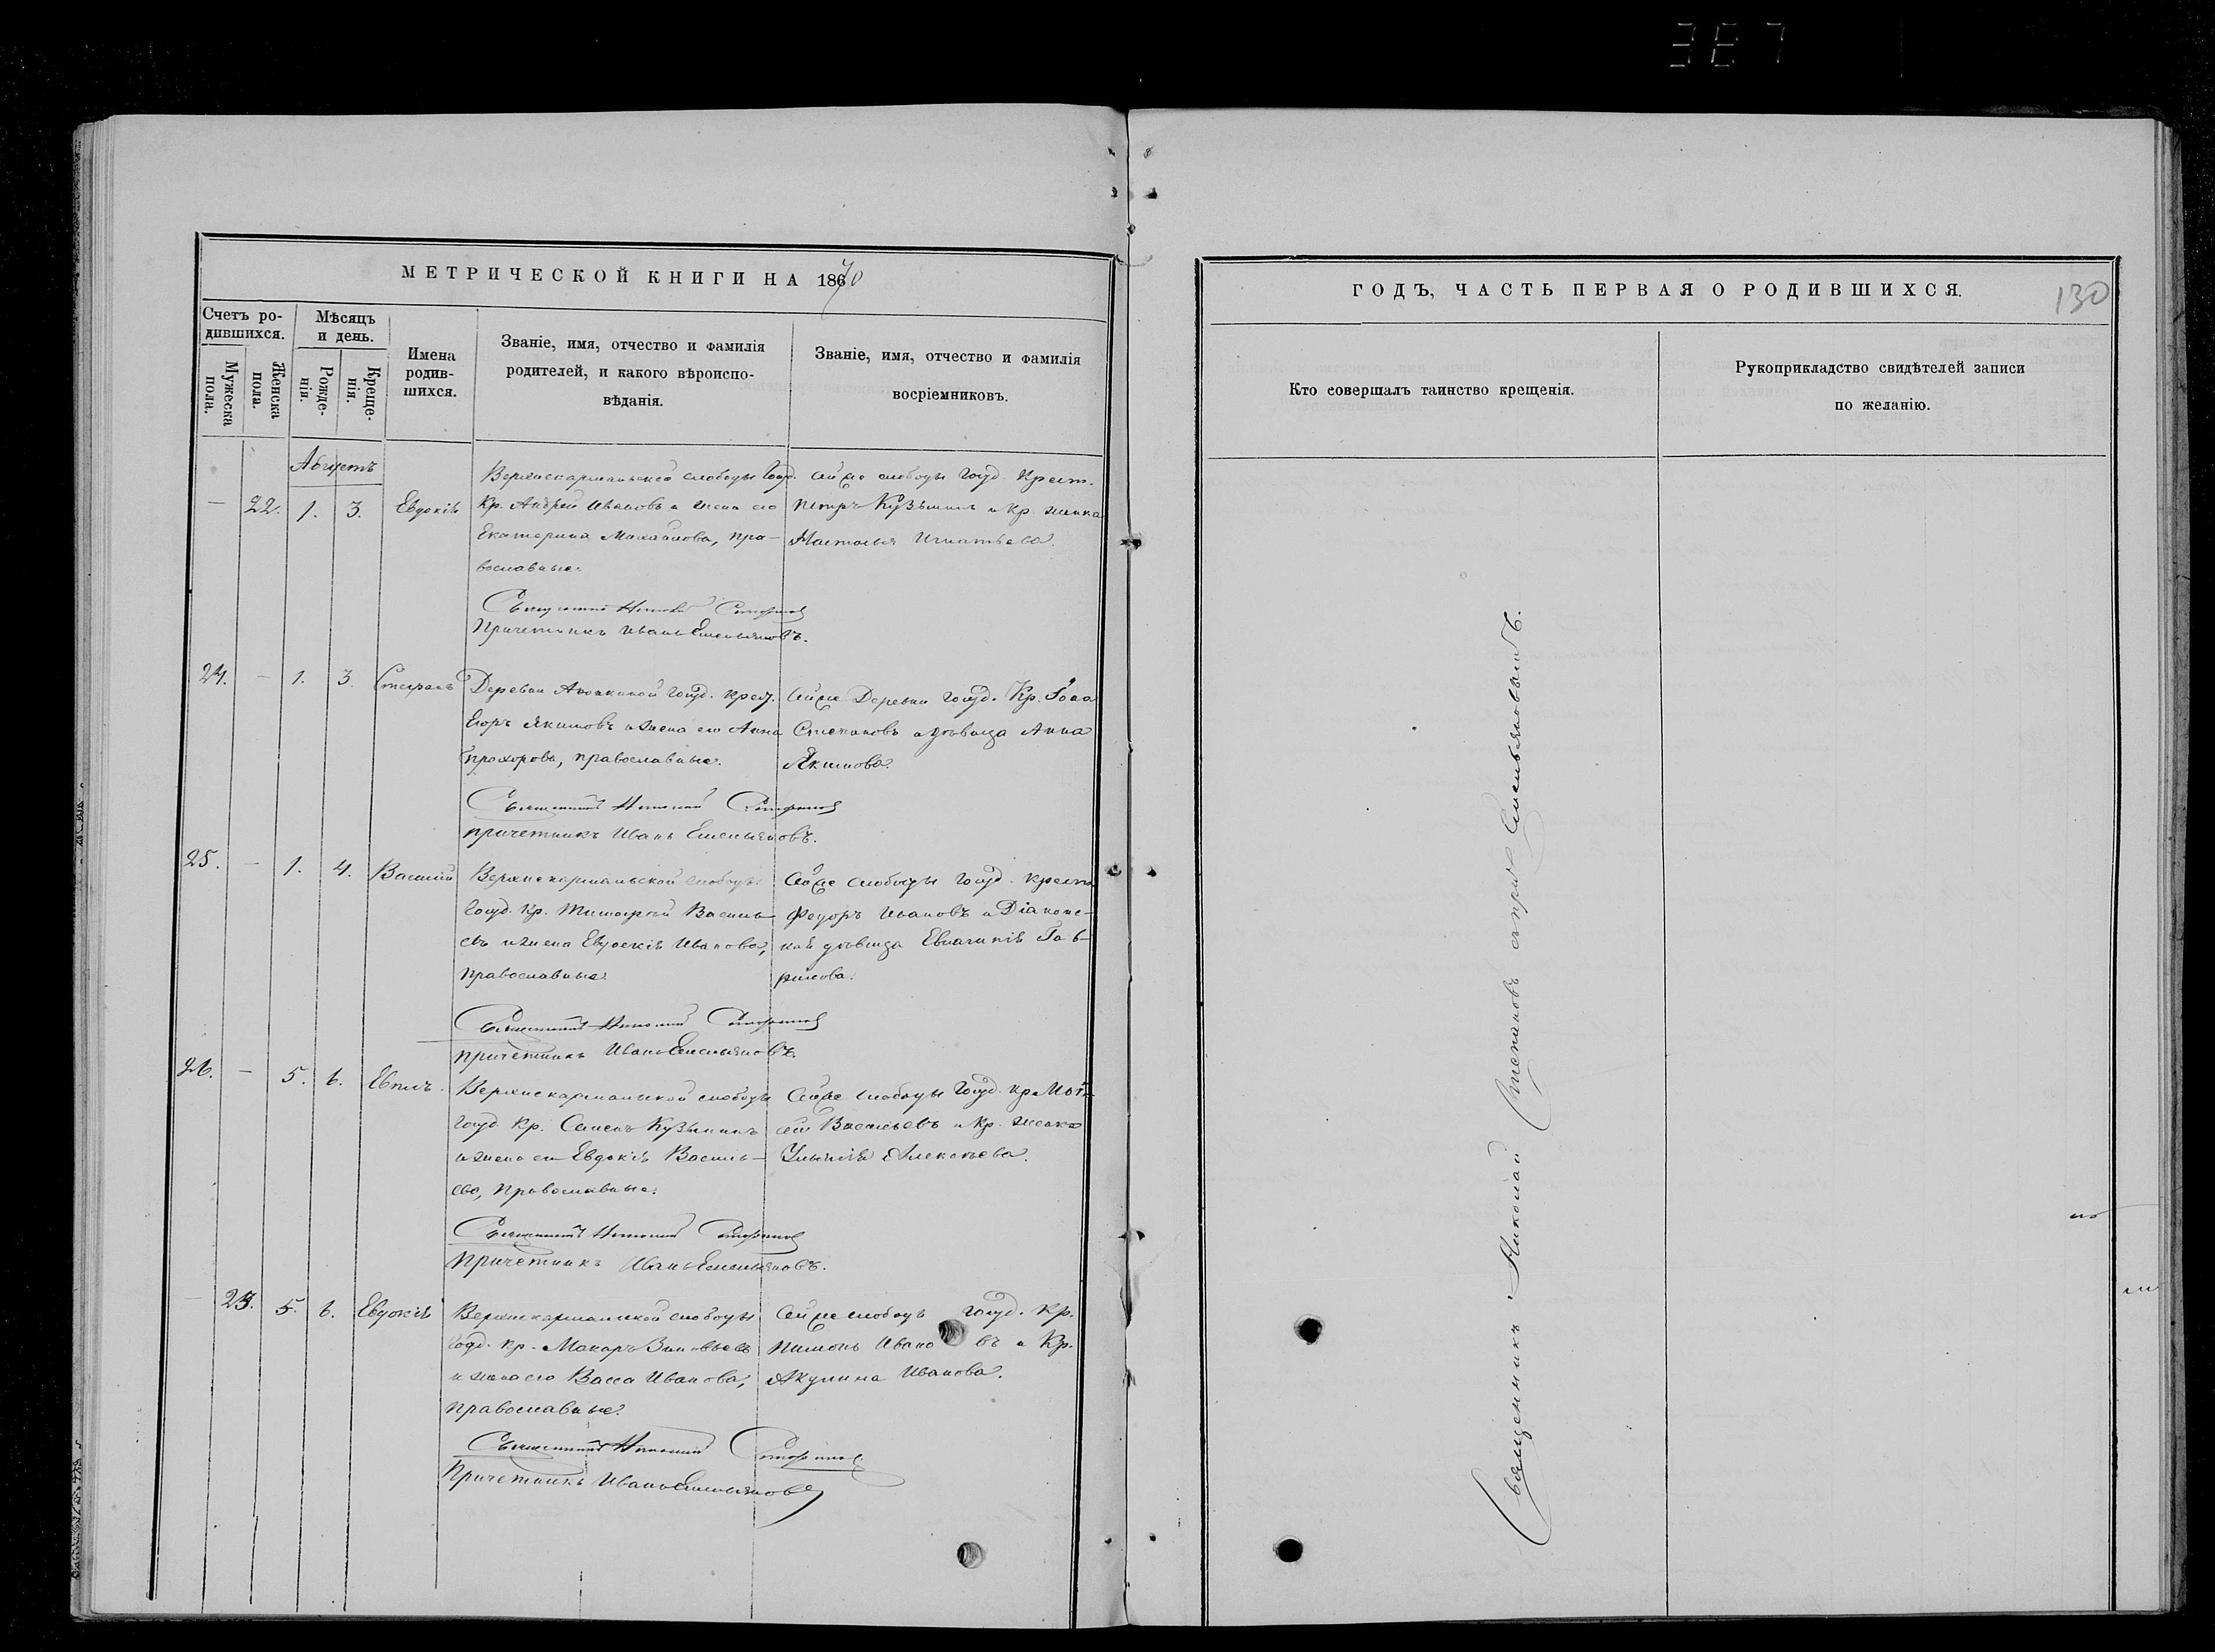 МЕТРИЧЕСКОЙ КНИГИ НА 1870
Счетъ родившихся.
Мужеска пола.
Женска пола.
Мѣсяцъ и день.
Рожденія.
Крещенія.
Имена родившихся.
Званіе, имя, отчество и фамилія родителей, и какого вѣроисповѣданія.
Званіе, имя, отчество и фамилія восріемниковъ.
Августъ
— 22. 1. 3. Евдокія
слободы Госуд.
Кр. Андрей Ивановъ и жена его
Екатерина Михайлова, пра-
вославные.
Сей же слободы Госуд. Крест.
Петръ Кузьминъ и Кр. женка
Настасья Игнатьева.
Священникъ Николай
Причетникъ Иванъ Емельяновъ.
24. — 1. 3. Стефанъ
Деревни Госуд. крест.
Егоръ Якимовъ и жена его Анна
Прохорова, православные.
Сей же Деревни Госуд. Кр.
Степановъ и дѣвица Анна
Якимова.
Священникъ Николай
причетникъ Иванъ Емельяновъ.
25. — 1. 4. Василій
слободы
Госуд. Кр. Тимофей Василь-
евъ и жена Евдокія Иванова,
православные.
Сей же слободы Госуд. крест.
Федоръ Ивановъ и Діаконс-
кая дѣвица Гав-
рилова.
Священникъ Николай
причетникъ Иванъ Емельяновъ.
26. — 5. 6. Евплъ.
слободы
Госуд. Кр. Семенъ Кузьминъ
и жена его Евдокія Василь-
ева, православные.
Сей же слободы Госуд. кр. Мои-
сей Васильевъ и Кр. женка
Ульянія Алексѣева.
Священникъ Николай
Причетникъ Иванъ Емельяновъ.
— 23. 5. 6. Евдокія
слободы
Госуд. Кр. Макаръ Зиновьевъ
и жена его Васса Иванова,
православные.
Сей же слободы Госуд. Кр.
Пименъ Ивановъ и Кр.
Акулина Иванова.
Священникъ Николай
Причетникъ Иванъ Емельяновъ
ГОДЪ, ЧАСТЬ ПЕРВАЯ О РОДИВШИХСЯ.
130
Кто совершалъ таинство крещенія.
Рукоприкладство свидѣтелей записи по желанію.
Священникъ Николай Степановъ съ прич. Емельяновымъ.
387